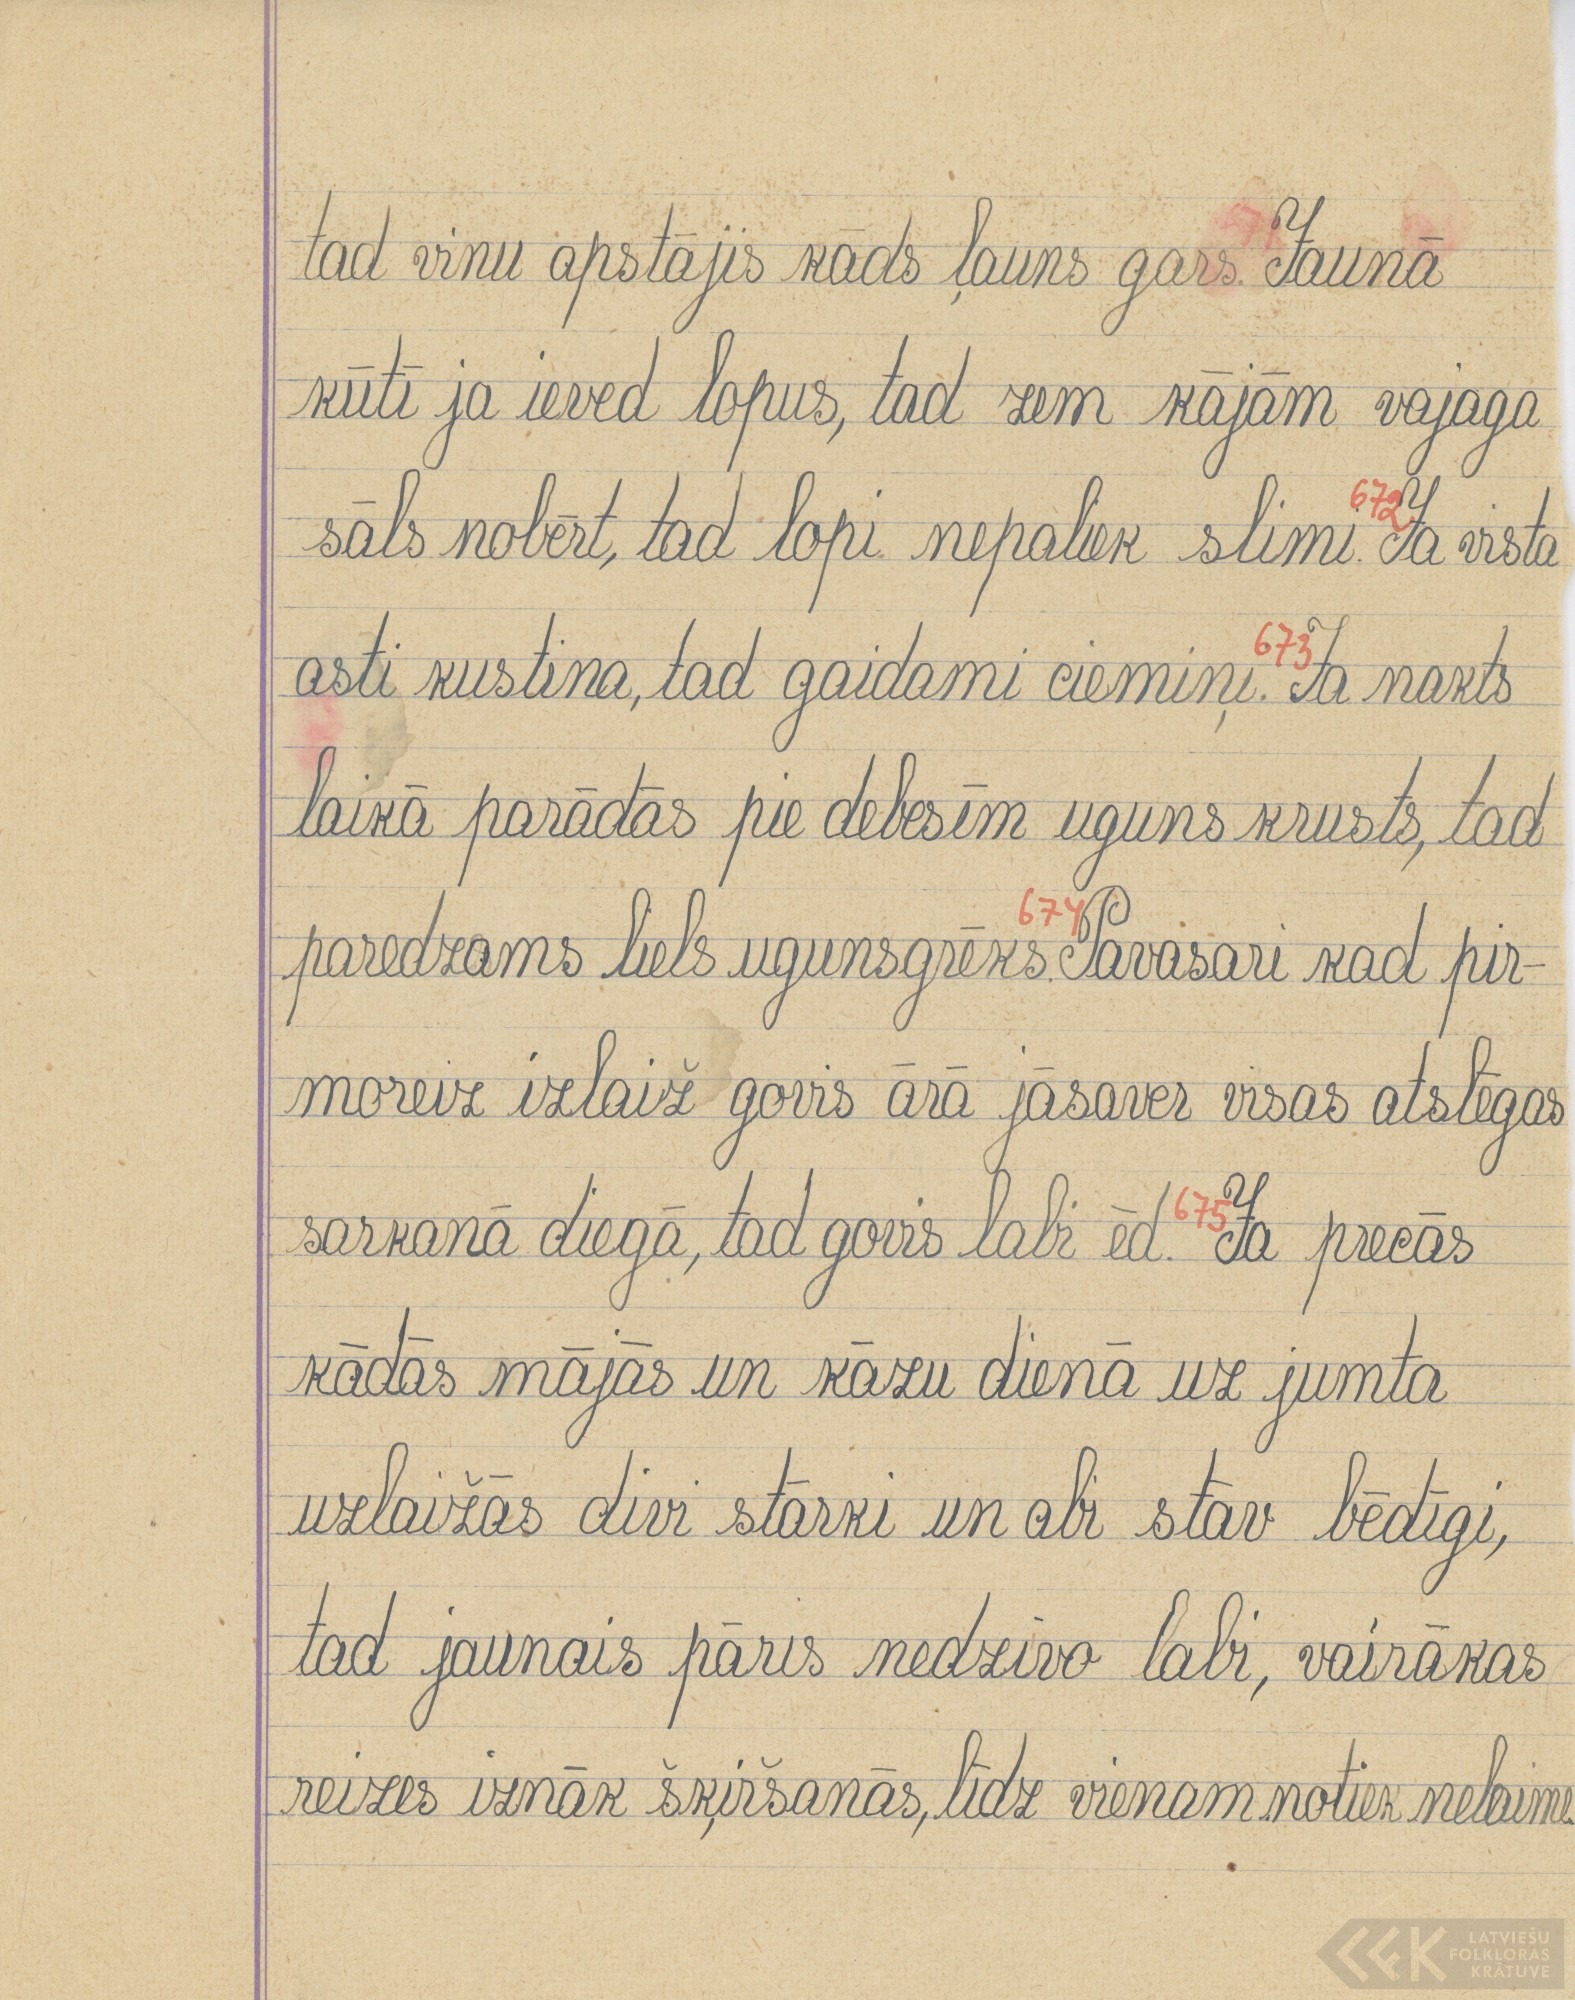 tad vinu apstājis kāds ļauns gars. 671 Jaunā
kūtī ja ieved lopus, tad zem kājām vajaga
sāls nobērt, tad lopi nepaliek slimi. 672 Ja vista
asti kustina, tad gaidami ciemiņi. 673 Ja nakts
laikā parādās pie debesīm uguns krusts, tad
paredzams liels ugunsgrēks. 674 Pavasari kad pir-
moreiz izlaiž govis ārā jāsaver visas atslēgas
sarkanā diegā, tad govis labi ēd. 675 Ja precās
kādās mājās un kāzu dienā uz jumta
uzlaižās divi stārki un abi stāv bēdīgi,
tad jaunais pāris nedzīvo labi, vairākas
reizes iznāk šķiršanās, līdz vienam notiek nelaime.
LATVIEŠU
FOLKLORAS
KRĀTUVE